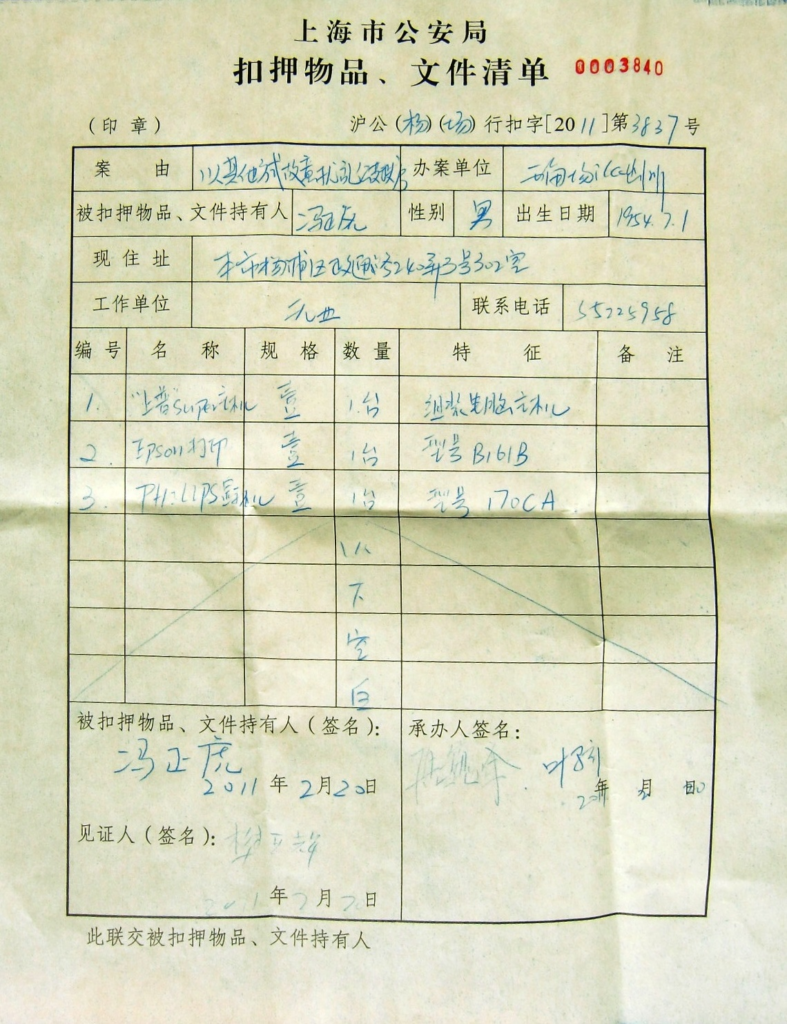 上海市公安局
扣押物品、文件清单 0003840
（印章） 沪公（杨）（场）行扣字[2011]第3837号
案由 以其他方式故意扰乱 办案单位
被扣押物品、文件持有人 冯正虎 性别 男 出生日期 1954.7.1
现住址 本市杨浦区政通路240弄3号302室
工作单位 无业 联系电话 55225958
编号 名称 规格 数量 特征 备注
1. 主机 壹 1台 组装电脑主机
2. Epson打印 壹 1台 型号B161B
3. PHILIPS显示机 壹 1台 型号170CA
以
下
空
白
被扣押物品、文件持有人（签名）： 承办人签名：
冯正虎
2011年2月20日 年 月 日
见证人（签名）：
年 月 日
此联交被扣押物品、文件持有人